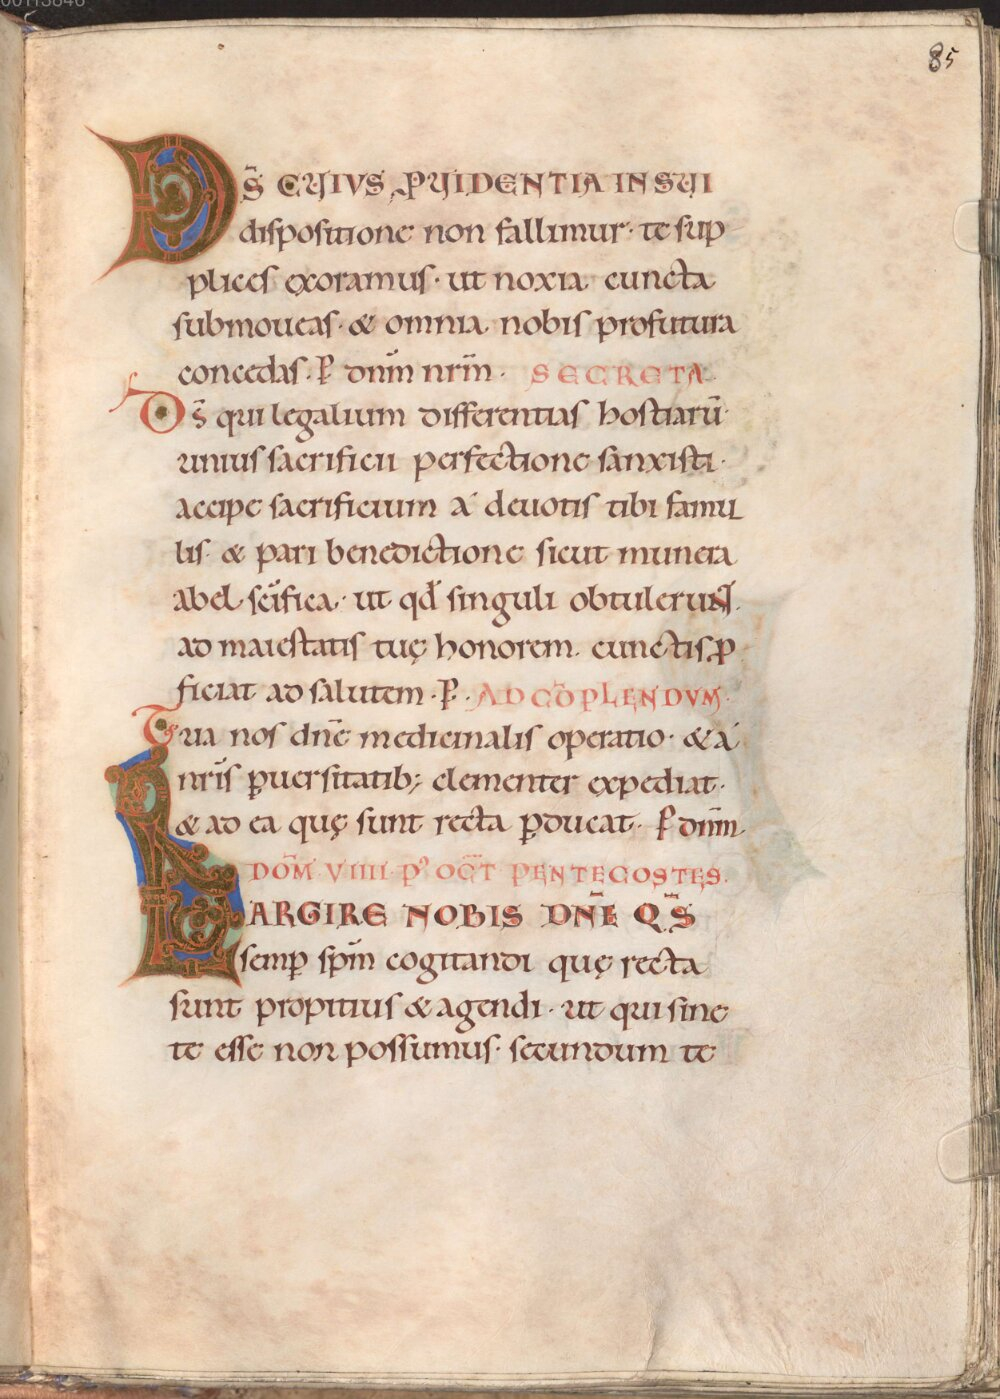 85
DS̄ CUIUS PUIDENTIA IN SUI
dispositione non fallimur · te sup
plices exoramus · ut noxia cuncta
submoveas · & omnia nobis profutura
concedas · P̄ dnm̄ nrm̄ · SECRETA ·
Ds̄ qui legalium differentias hostiarū
unius sacrificii perfectione sanxisti ·
accipe sacrificium á devotis tibi famu
lis · & pari benedictione sicut munera
abel scīfica · ut qd̄ singuli obtulerunt ·
ad maiestatis tuę honorem · cunctis ꝓ
ficiat ad salutem · P̄ · AD CŌPLENDUM ·
Tua nos dnē medicinalis operatio · & á
nrīs ꝑversitatib; clementer expediat ·
& ad ea quę sunt recta ꝑducat · P̄ dnm̄
DOM̄ VIIII P' OCT̄ PENTECOSTES ·
LARGIRE NOBIS DNĒ QS̄
semꝑ spm̄ cogitandi quę recta
sunt propitius & agendi · ut qui sine
te esse non possumus · secundum te